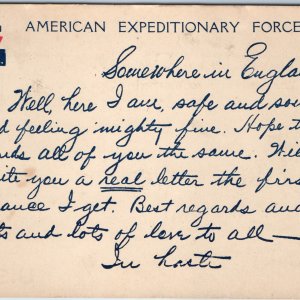 AMERICAN EXPEDITIONARY FORCE
Somewhere in Engla
Well, here I am, safe and so
d feeling mighty fine. Hope t
ds all of you the same. Wil
ite you a real letter the firs
ance I get. Best regards and
ts and lots of love to all—
In haste